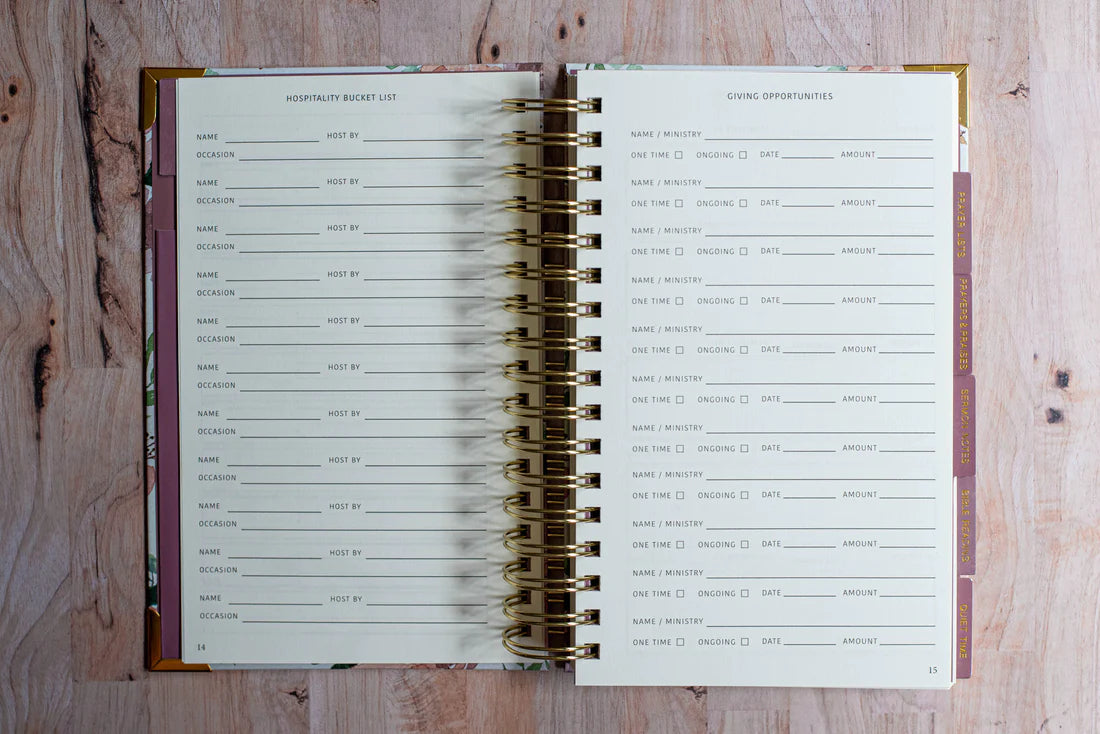 HOSPITALITY BUCKET LIST
NAME HOST BY
OCCASION
NAME HOST BY
OCCASION
NAME HOST BY
OCCASION
NAME HOST BY
OCCASION
NAME HOST BY
OCCASION
NAME HOST BY
OCCASION
NAME HOST BY
OCCASION
NAME HOST BY
OCCASION
NAME HOST BY
OCCASION
NAME HOST BY
OCCASION
NAME HOST BY
OCCASION
14
GIVING OPPORTUNITIES
NAME / MINISTRY
ONE TIME ONGOING DATE AMOUNT
NAME / MINISTRY
ONE TIME ONGOING DATE AMOUNT
NAME / MINISTRY
ONE TIME ONGOING DATE AMOUNT
NAME / MINISTRY
ONE TIME ONGOING DATE AMOUNT
NAME / MINISTRY
ONE TIME ONGOING DATE AMOUNT
NAME / MINISTRY
ONE TIME ONGOING DATE AMOUNT
NAME / MINISTRY
ONE TIME ONGOING DATE AMOUNT
NAME / MINISTRY
ONE TIME ONGOING DATE AMOUNT
NAME / MINISTRY
ONE TIME ONGOING DATE AMOUNT
NAME / MINISTRY
ONE TIME ONGOING DATE AMOUNT
NAME / MINISTRY
ONE TIME ONGOING DATE AMOUNT
15
PRAYER LISTS
PRAYERS & PRAISES
SERMON NOTES
BIBLE READING
QUIET TIME